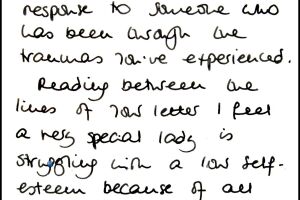 response to someone who
has been through the
traumas you've experienced.
Reading between the
lines of your letter I feel
a very special lady is
struggling with a low self-
esteem because of all